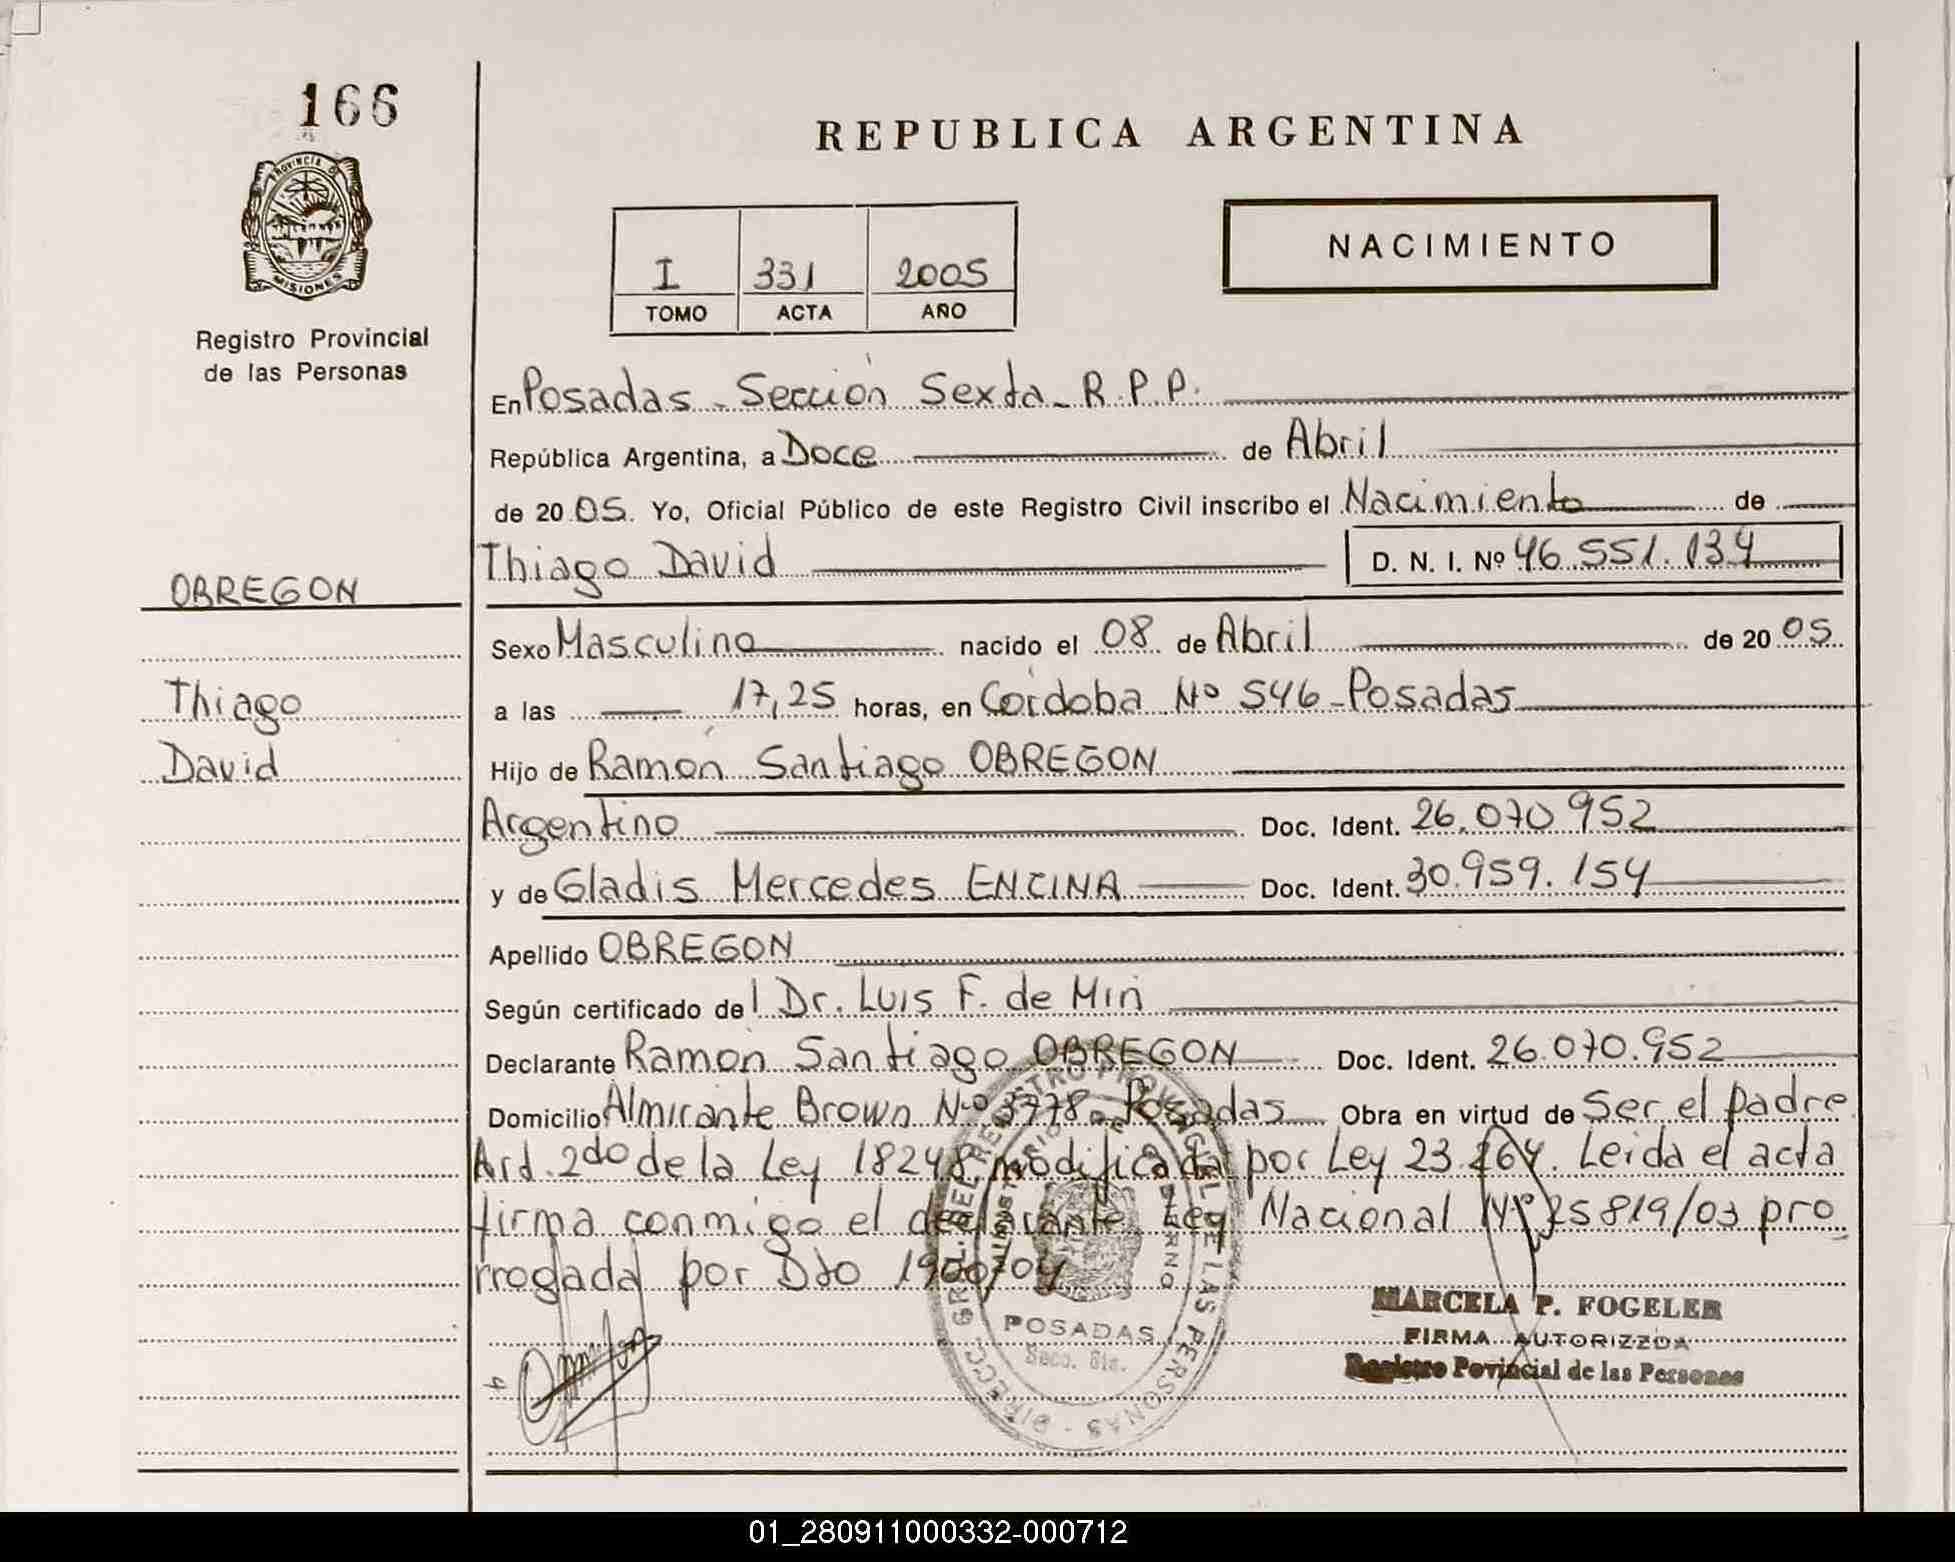 166
PROVINCIA DE
MISIONES
Registro Provincial
de las Personas
REPUBLICA ARGENTINA
I 331 2005
TOMO ACTA AÑO
NACIMIENTO
En Posadas - Sección Sexta - R.P.P.
República Argentina, a Doce de Abril
de 2005. Yo, Oficial Público de este Registro Civil inscribo el Nacimiento de
Thiago David D. N. I. Nº 46.551.134
OBREGON
Thiago
David
Sexo Masculino nacido el 08 de Abril de 2005
a las 17,25 horas, en Córdoba Nº 546 - Posadas
Hijo de Ramón Santiago OBREGON
Argentino Doc. Ident. 26.070952
y de Gladis Mercedes ENCINA Doc. Ident. 30.959.154
Apellido OBREGON
Según certificado del Dr. Luis F. de Miri
Declarante Ramón Santiago OBREGON Doc. Ident. 26.070.952
Domicilio Almirante Brown Nº 3778 - Posadas Obra en virtud de Ser el padre
Art. 2do de la Ley 18248 modificada por Ley 23.264. Leida el acta
firma conmigo el declarante Ley Nacional Nº 25819/03 pro
rrogada por Dto 1900/04
DIRECC. GRL. DEL REGISTRO PROVINCIAL DE LAS PERSONAS
POSADAS
Secc. 6ta.
MARCELA P. FOGELER
FIRMA AUTORIZZDA
Registro Povincial de las Personas
01_280911000332-000712